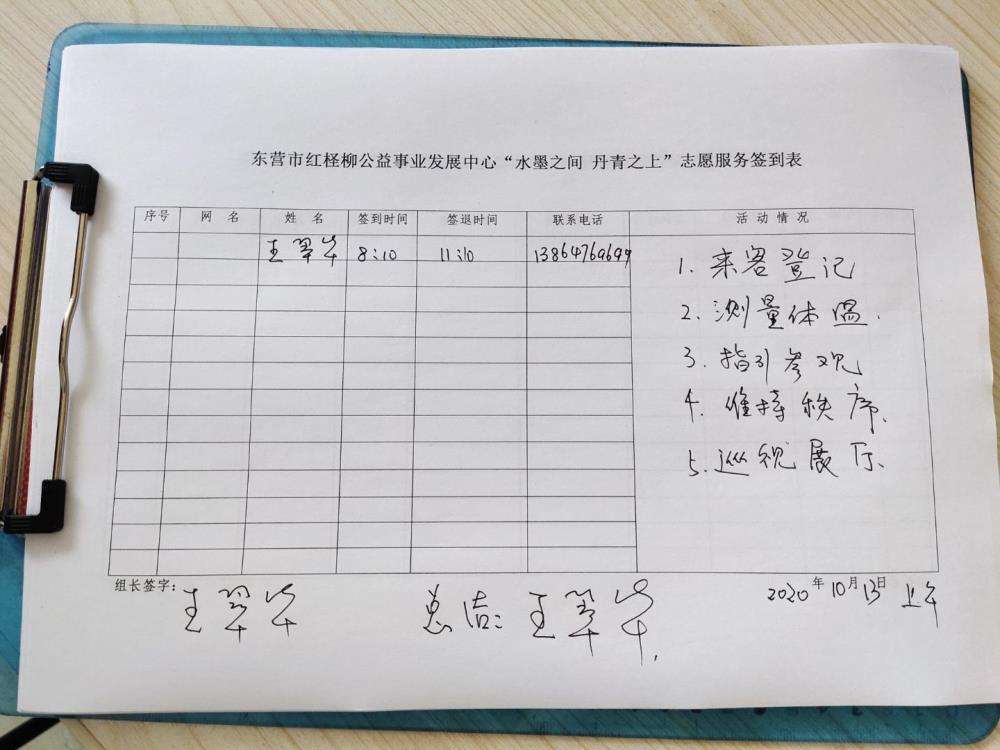 东营市红柽柳公益事业发展中心“水墨之间 丹青之上”志愿服务签到表
序号 网 名 姓 名 签到时间 签退时间 联系电话 活 动 情 况
王翠华 8:10 11:10 13864769699
1. 来客登记
2. 测量体温.
3. 指引参观
4. 维持秩序.
5. 巡视展厅.
组长签字: 王翠华 总结: 王翠华.
2020年10月13日 上午